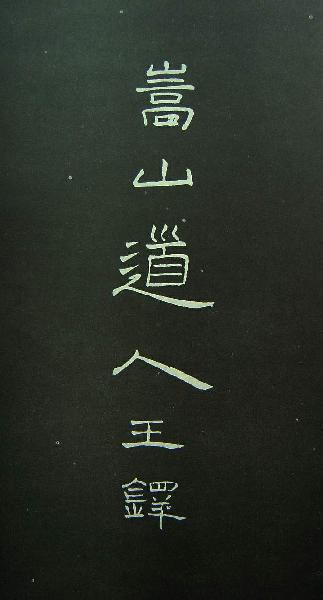 嵩山道人王鐸